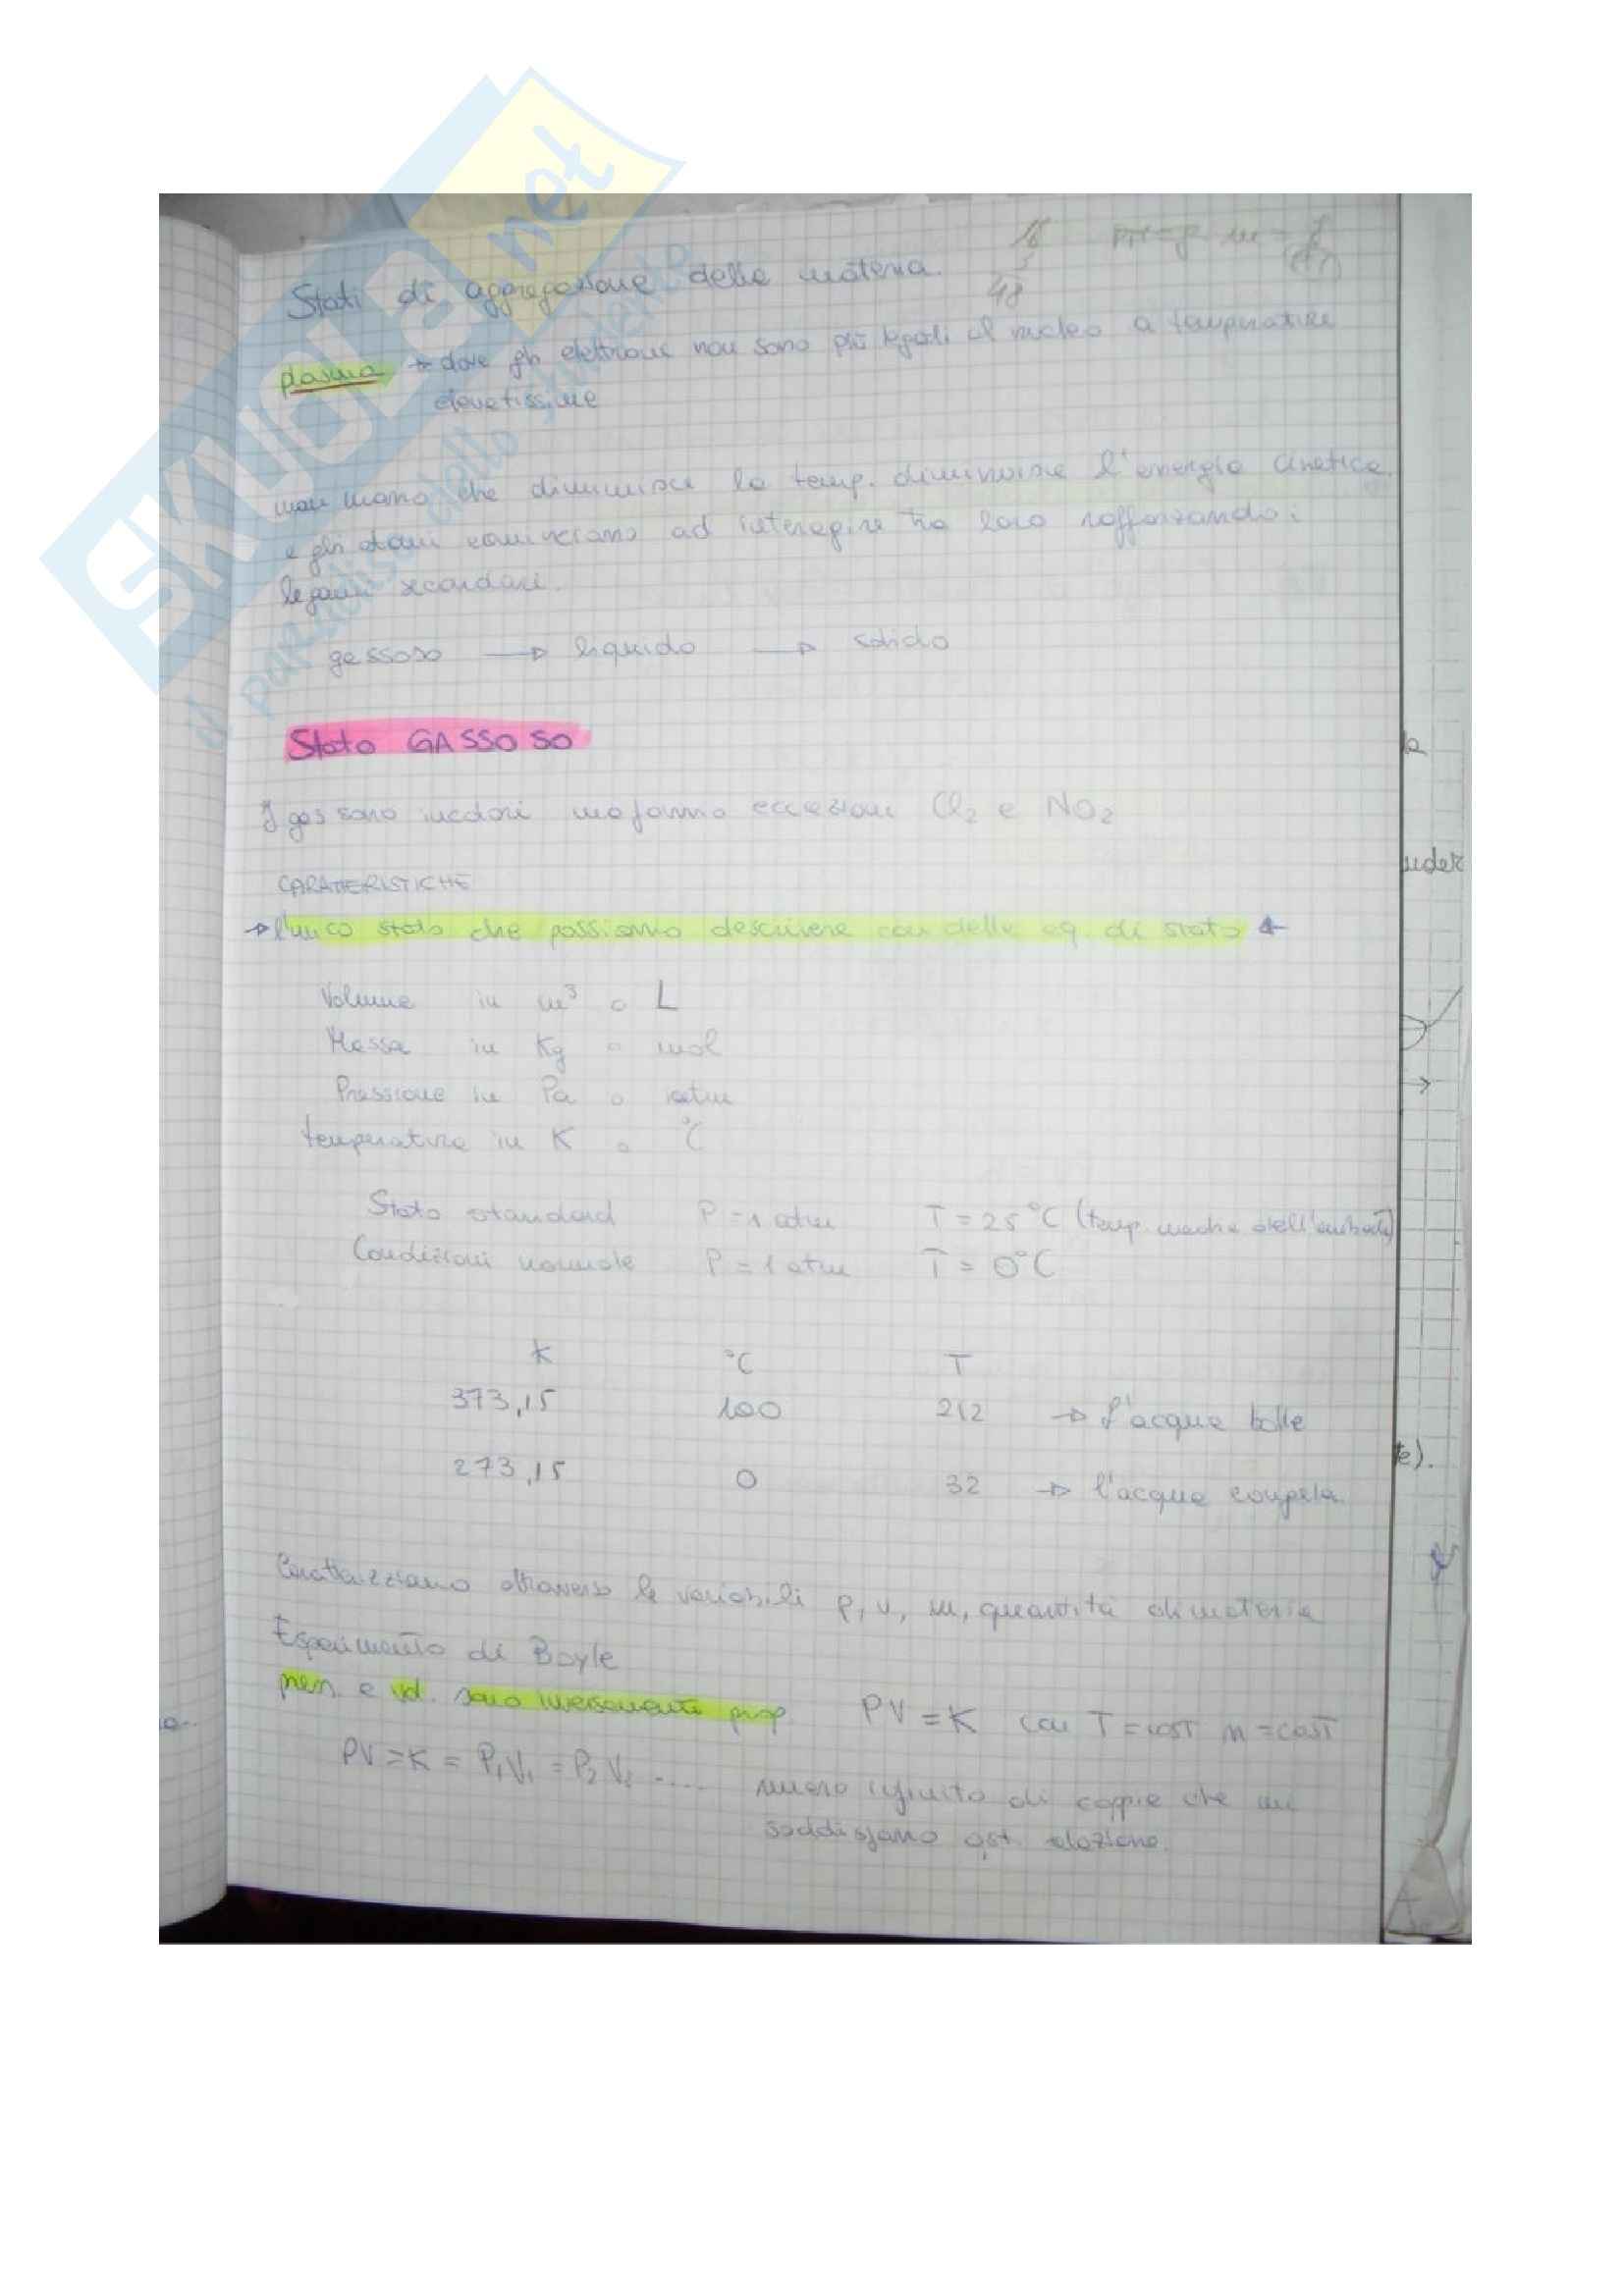 Stati di aggregazione della materia.
16
3
48
plasma → dove gli elettroni non sono più legati al nucleo a temperature
elevatissime
man mano che diminuisce la temp. diminuisce l'energia cinetica
e gli atomi cominciano ad interagire tra loro rafforzando i
legami secondari.
gassoso → liquido → solido
Stato GASSOSO
I gas sono incolori ma fanno eccezioni Cl₂ e NO₂
CARATTERISTICHE
→ l'unico stato che possiamo descrivere con delle eq. di stato ←
Volume in m³ o L
Massa in Kg o mol
Pressione in Pa o atm
temperatura in K o °C
Stato standard P = 1 atm T = 25 °C (temp. media dell'ambiente)
Condizioni normale P = 1 atm T = 0°C
K °C T
373,15 100 212 → l'acqua bolle
273,15 0 32 → l'acqua congela.
attraverso le variabili p, v, m, quantità di materia
Esperimento di Boyle
pres. e vol. sono inversamente prop. PV = K con T = cost n = cost
PV = K = P₁V₁ = P₂V₂ .... numero infinito di coppie che mi
soddisfano qst. relazione.
SKUOLA.net
il paradiso dello studente